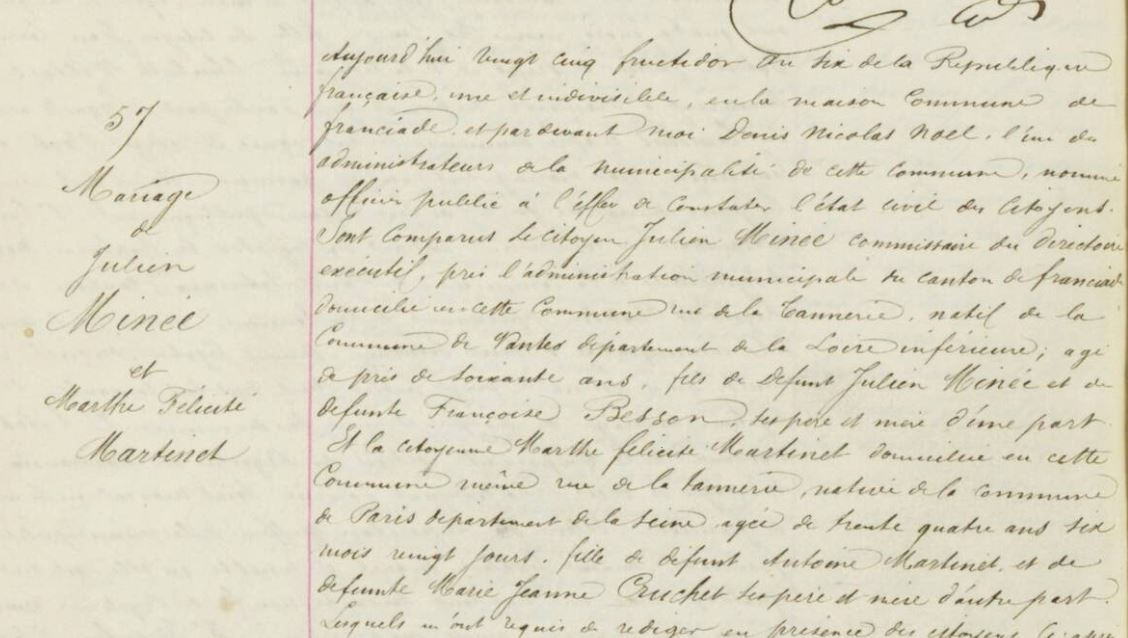 57
Mariage
de
Julien
Minée
et
Marthe Félicité
Martinet
Aujourd'hui vingt cinq fructidor an six de la République
française, une et indivisible, en la maison Commune de
franciade, et pardevant moi Denis Nicolas Noel, l'un des
administrateurs de la municipalité de cette commune, nommé
officier public à l'effet de Constater l'état civil des Citoyens.
Sont Comparus Le Citoyen Julien Minée commissaire du directoire
exécutif, près l'administration municipale du canton de franciade
domicilié en cette Commune rue de la Tannerie, natif de la
Commune de Nantes département de la Loire inférieure; agé
de près de soixante ans, fils de Défunt Julien Minée et de
défunte Françoise Besson, ses père et mère d'une part.
Et la citoyenne Marthe félicité Martinet domiciliée en cette
Commune même rue de la tannerie, native de la commune
de Paris département de la seine, agée de trente quatre ans six
mois vingt jours, fille de défunt Antoine Martinet, et de
défunte Marie Jeanne Cruchet ses père et mère d'autre part.
Lesquels m'ont requis de rédiger en présence des citoyens